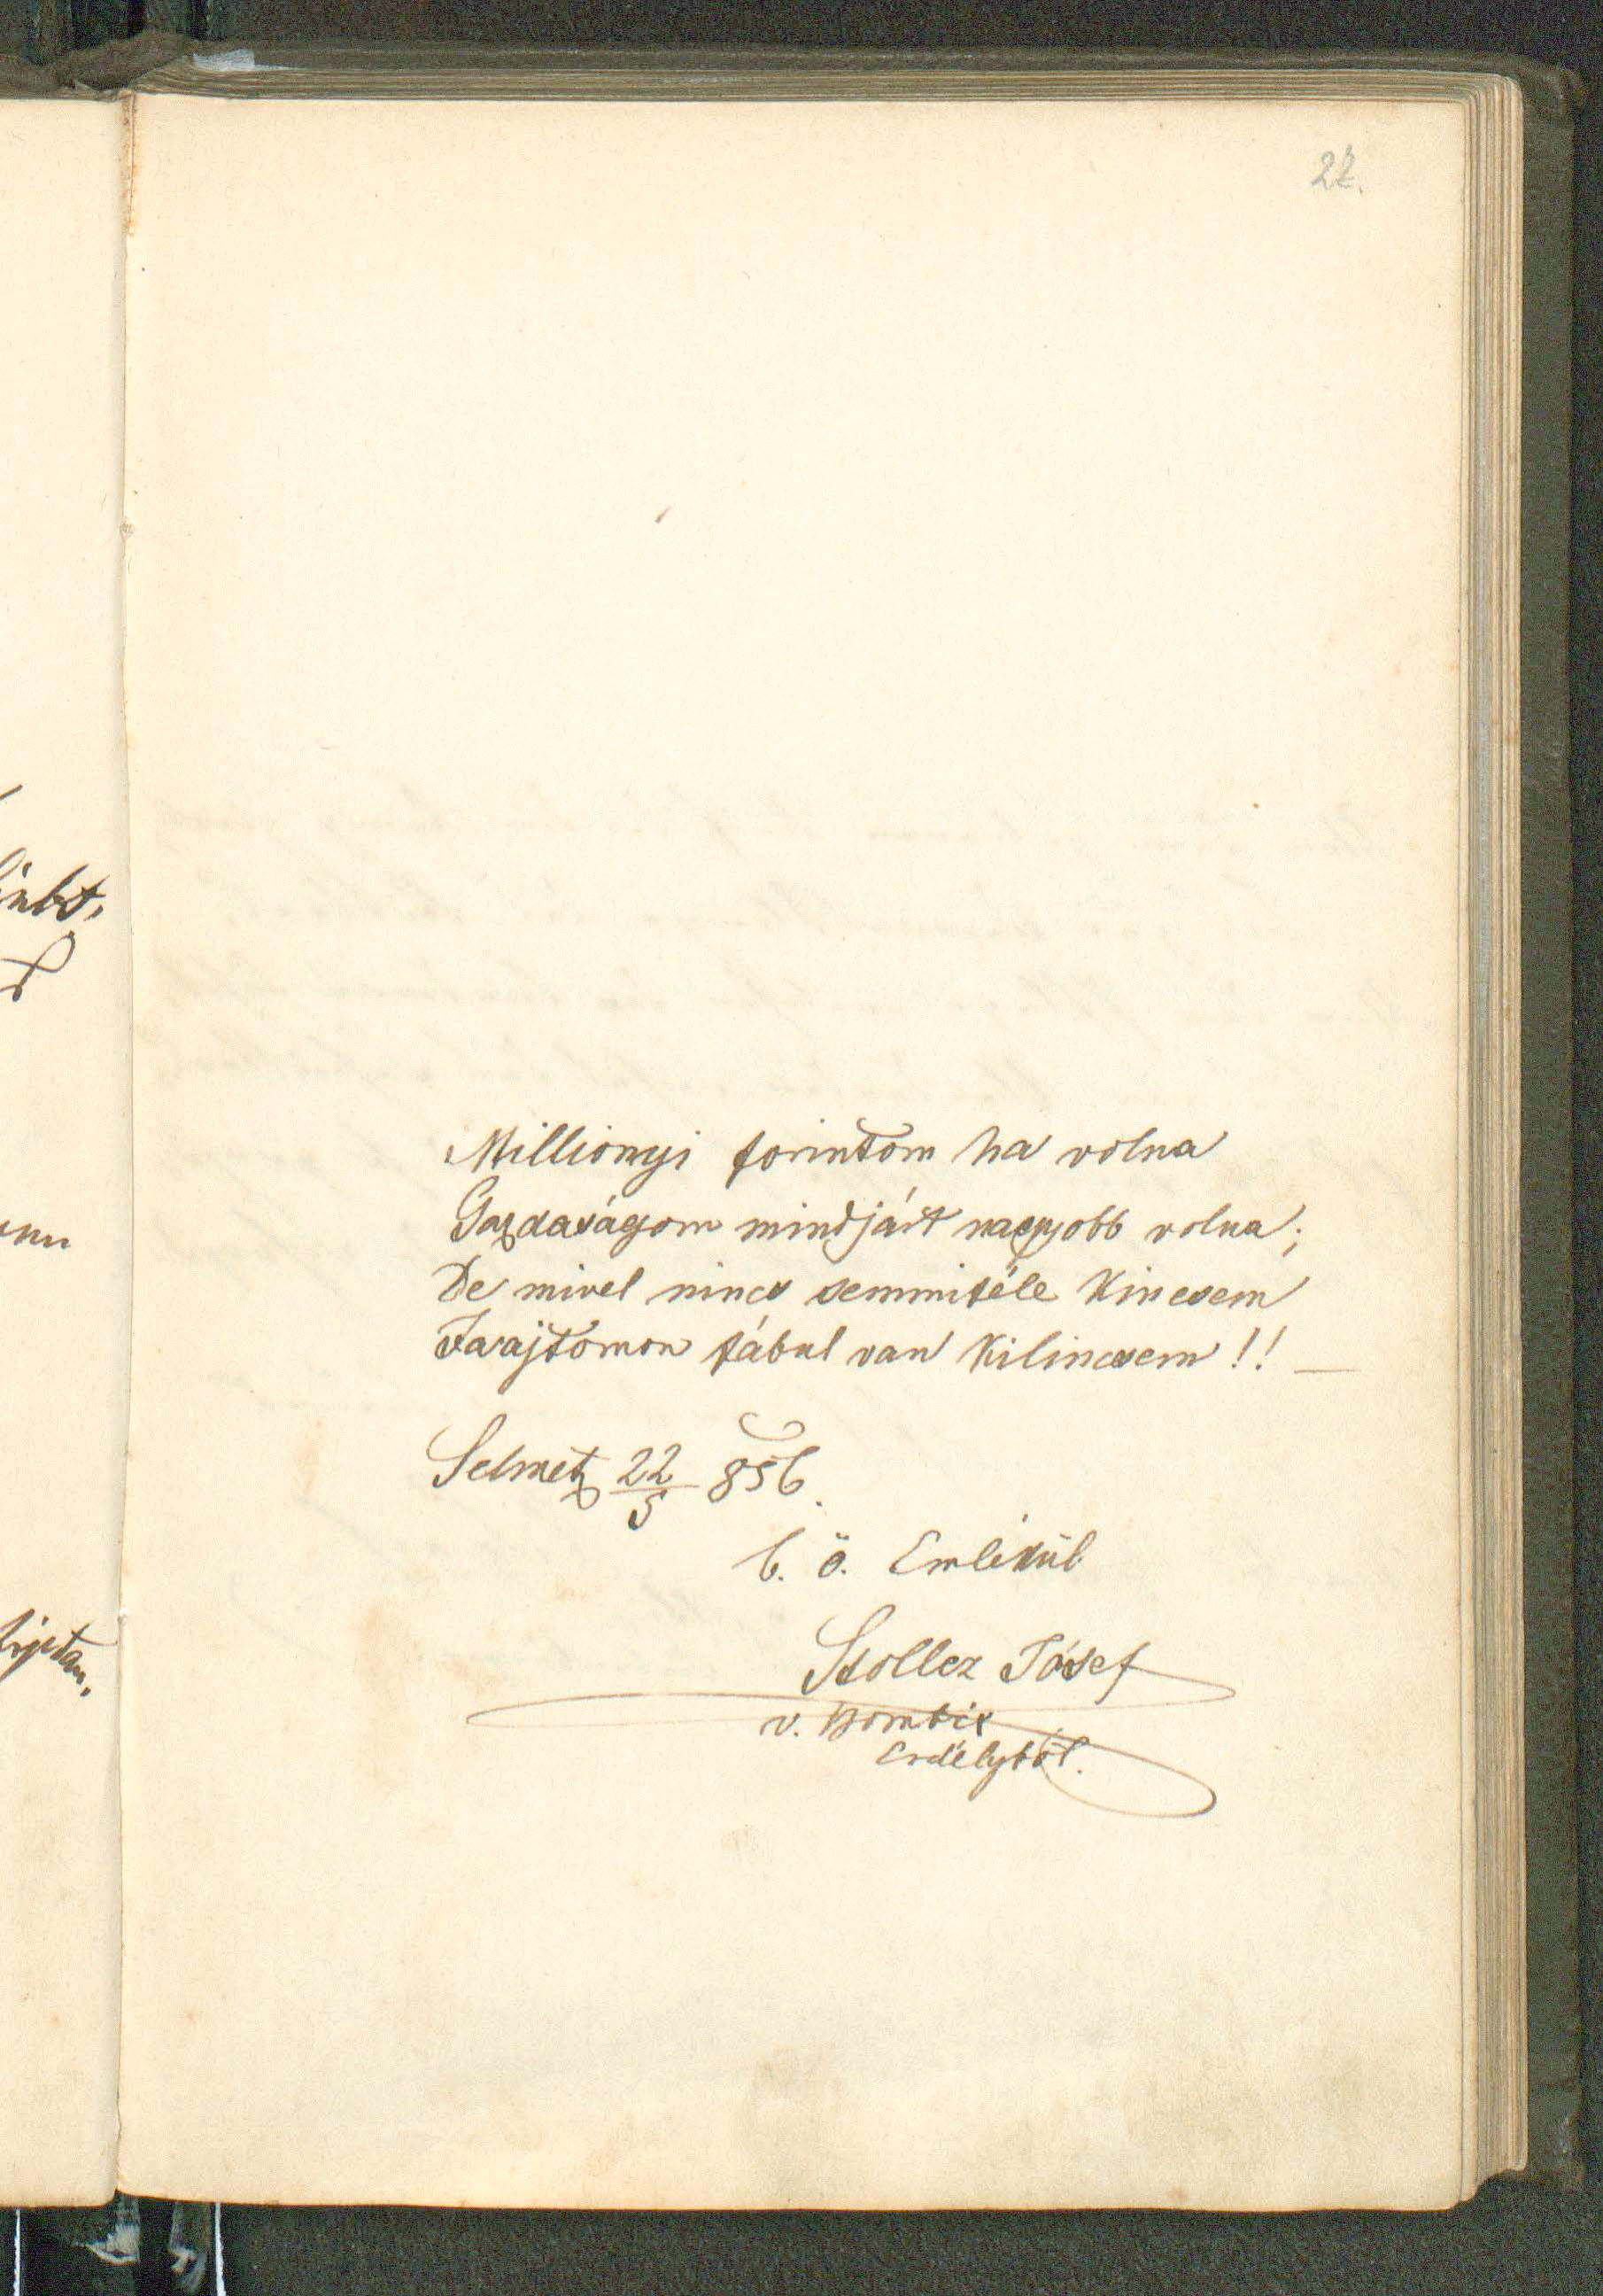 27.
Millionyi forintom ha volna
Gazdaságom mindjárt nagyobb volna;
De mivel nincs semmiféle Kincsem
Faajtomon fábul van Kilincsem!! —
Selmetz 22/5 856.
b. ö. Emlékül
Stoller Jósef
v.
Erdélyböl.